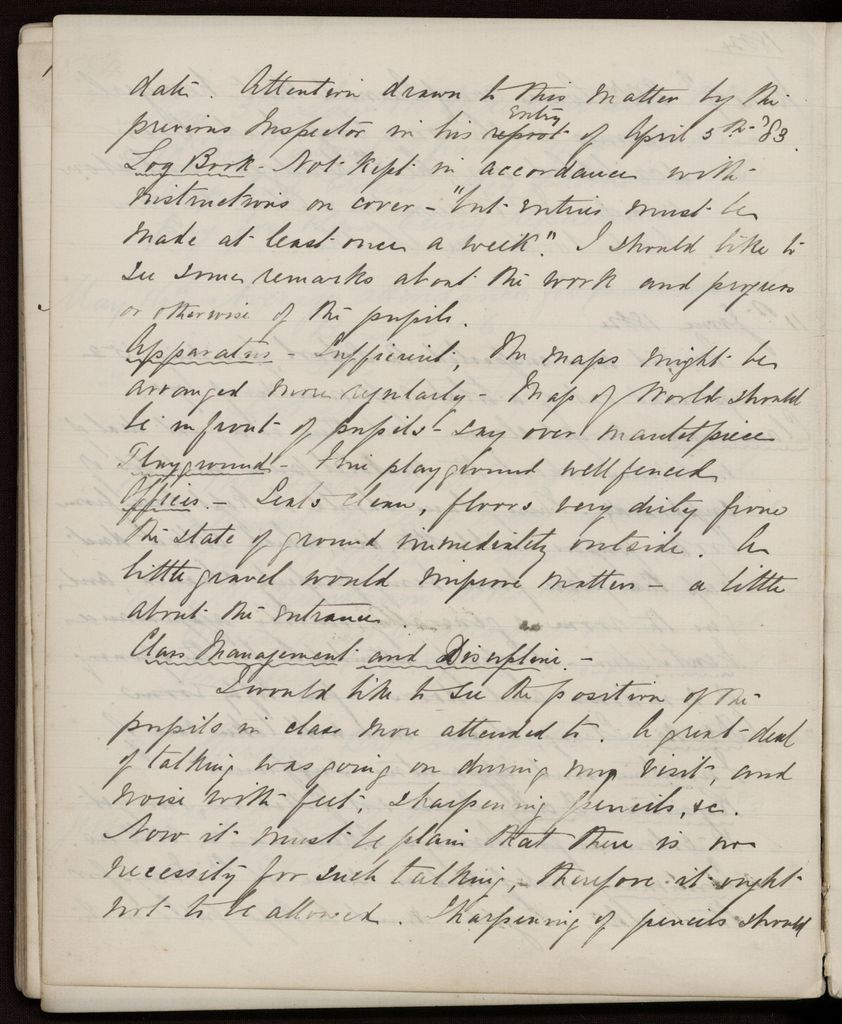 date. Attention drawn to this matter by the
previous Inspector in his report entry of April 5th '83.
Log Book - Not kept in accordance with
instructions on cover - "but entries must be
made at least once a week". I should like to
see some remarks about the work and progress
or otherwise of the pupils.
Apparatus - Sufficient, the maps might be
arranged more regularly - Map of World should
be in front of pupils - say over mantelpiece
Playground - Fine playground well fenced
Offices. - Seats clean, floors very dirty from
the state of ground immediately outside. A
little gravel would improve matters - a little
about the entrance.
Class Management and Discipline. -
I would like to see the position of the
pupils in class more attended to. A great deal
of talking was going on during my visit, and
noise with feet, sharpening pencils, &c.
Now it must be plain that there is no
necessity for such talking, - therefore it ought
not to be allowed. Sharpening of pencils should